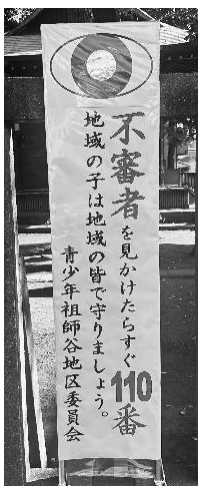 不審者を見かけたらすぐ110番
地域の子は地域の皆で守りましょう。
青少年祖師谷地区委員会